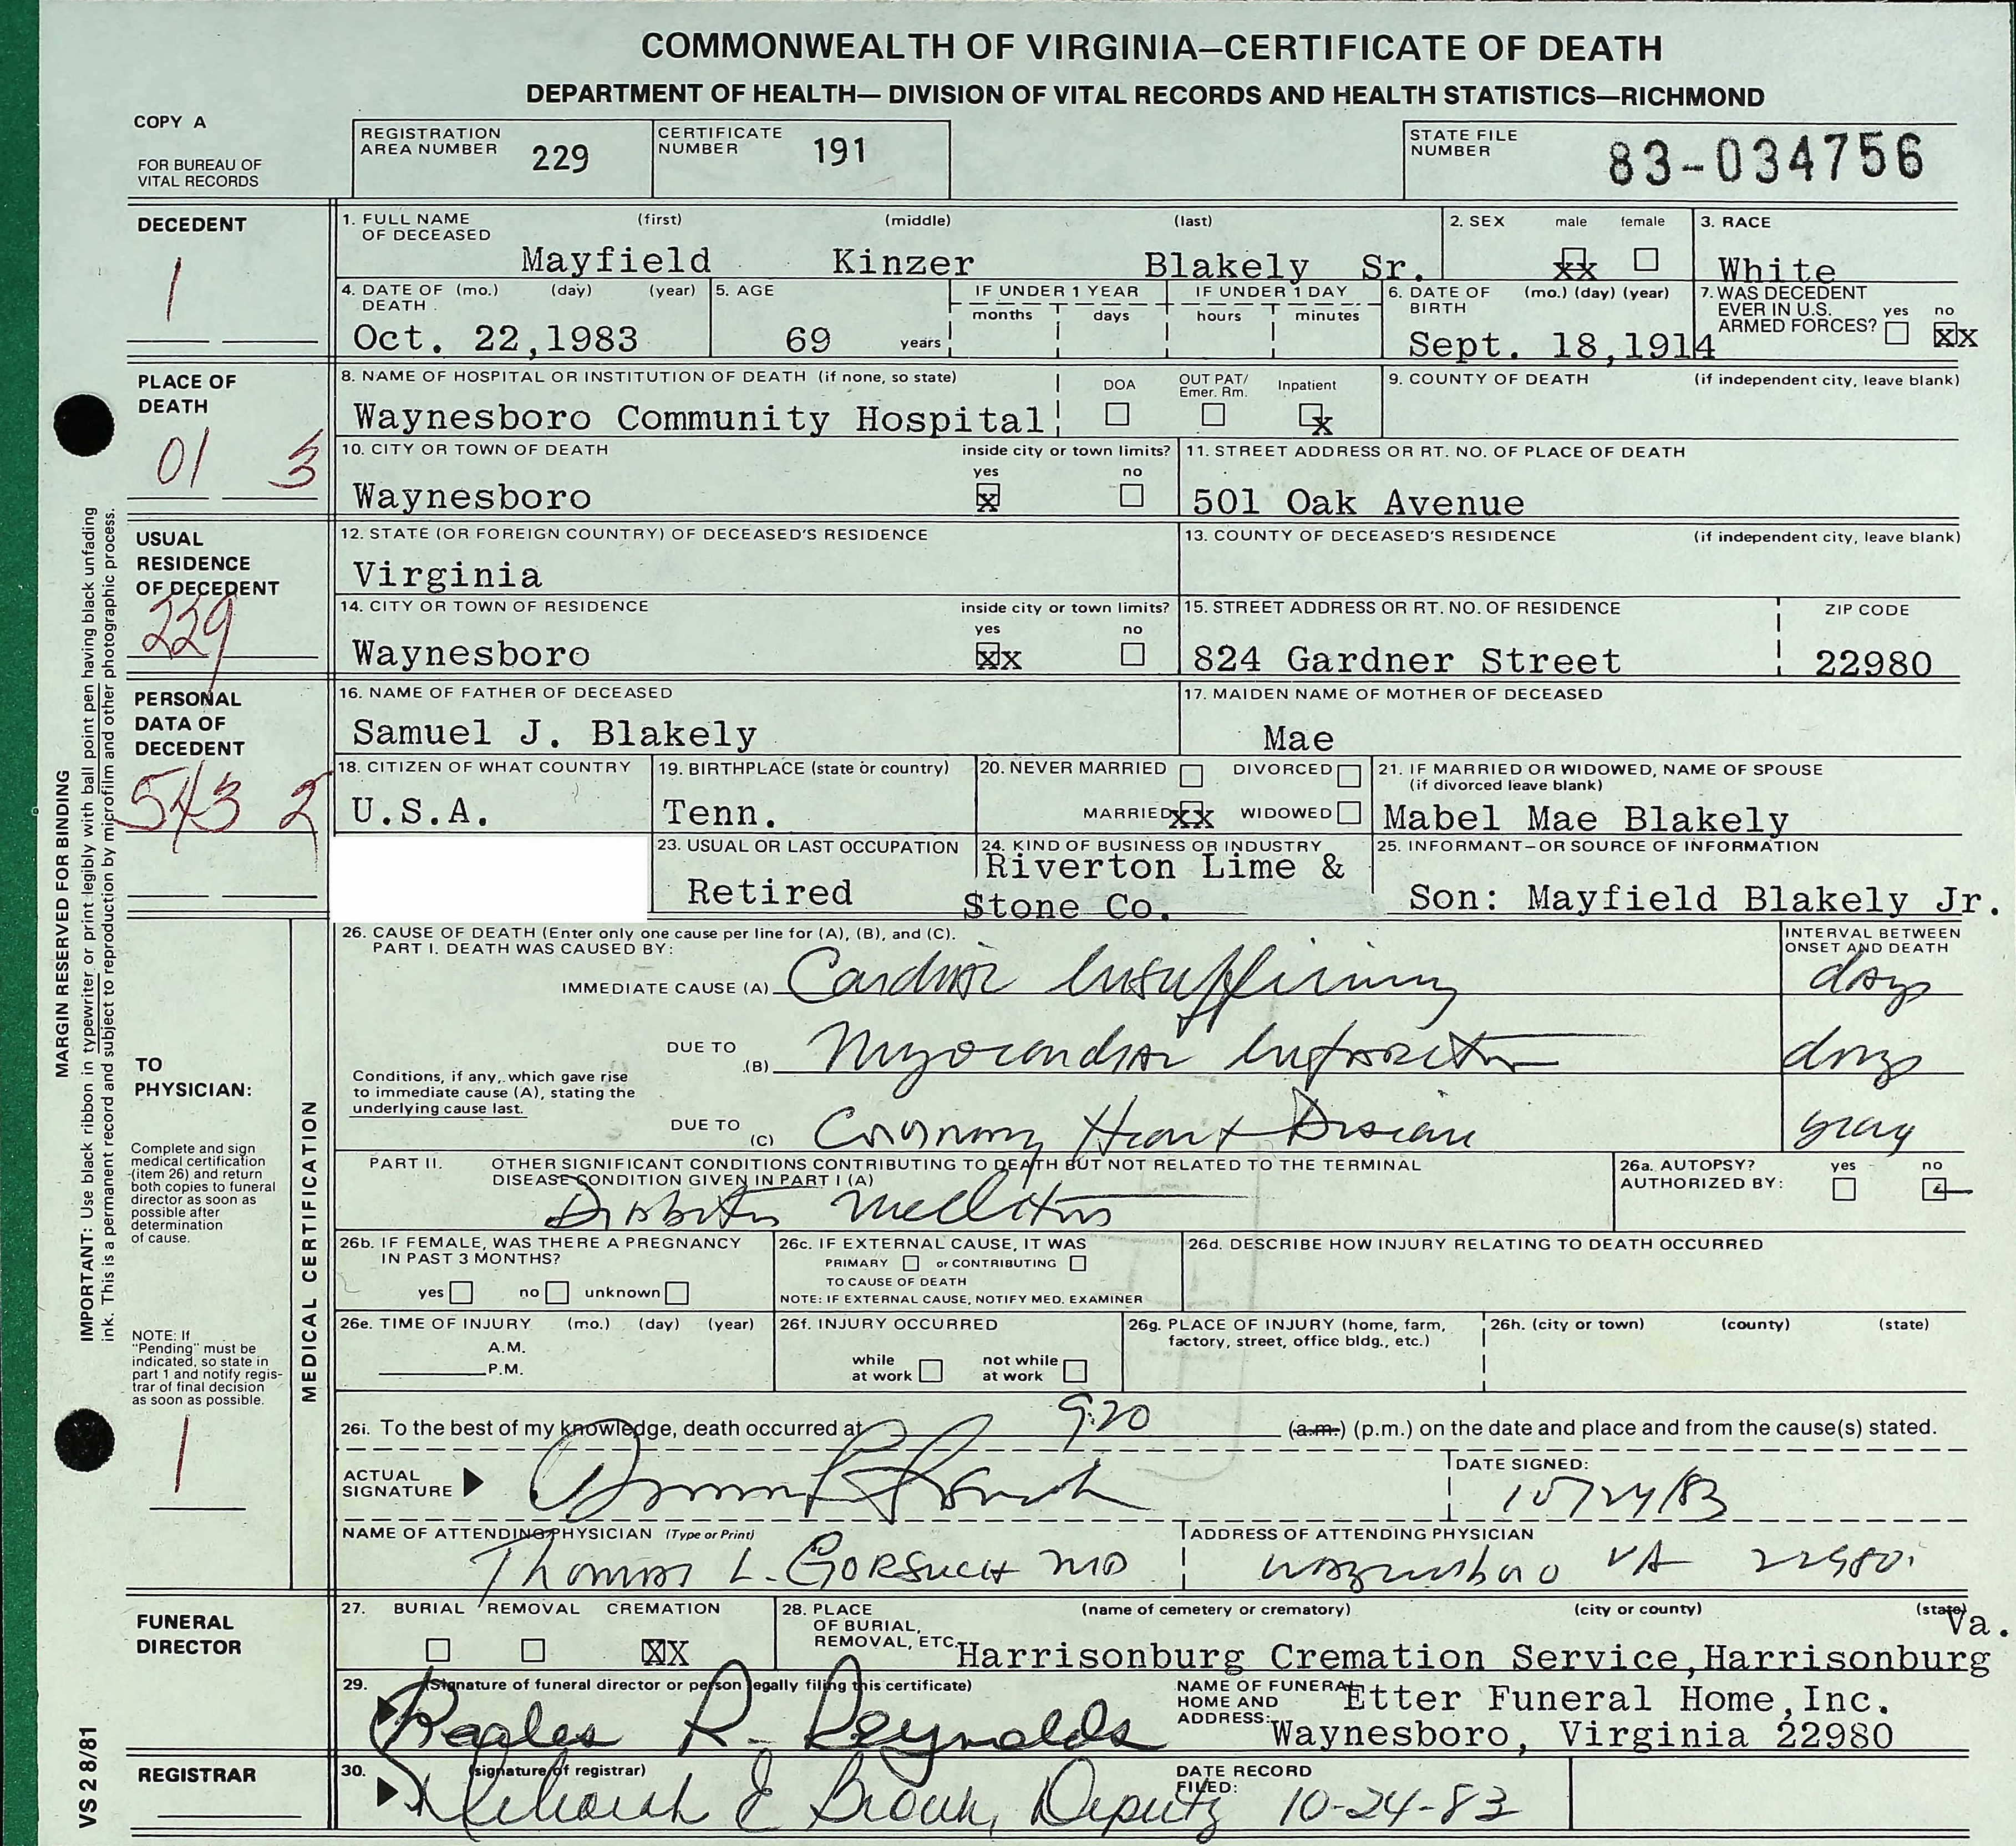 COMMONWEALTH OF VIRGINIA—CERTIFICATE OF DEATH
DEPARTMENT OF HEALTH— DIVISION OF VITAL RECORDS AND HEALTH STATISTICS—RICHMOND
COPY A
FOR BUREAU OF
VITAL RECORDS
REGISTRATION
AREA NUMBER 229
CERTIFICATE
NUMBER 191
STATE FILE
NUMBER 83-034756
DECEDENT
1
1. FULL NAME (first) (middle) (last)
OF DECEASED
Mayfield Kinzer Blakely Sr.
2. SEX male female
xx
3. RACE
White
4. DATE OF (mo.) (day) (year)
DEATH
Oct. 22,1983
5. AGE
69 years
IF UNDER 1 YEAR
months days
IF UNDER 1 DAY
hours minutes
6. DATE OF (mo.) (day) (year)
BIRTH
Sept. 18,1914
7. WAS DECEDENT
EVER IN U.S. yes no
ARMED FORCES? xx
PLACE OF
DEATH
01 3
8. NAME OF HOSPITAL OR INSTITUTION OF DEATH (if none, so state)
Waynesboro Community Hospital
DOA
OUT PAT/
Emer. Rm.
Inpatient
x
9. COUNTY OF DEATH (if independent city, leave blank)
10. CITY OR TOWN OF DEATH inside city or town limits?
yes no
Waynesboro x
11. STREET ADDRESS OR RT. NO. OF PLACE OF DEATH
501 Oak Avenue
USUAL
RESIDENCE
OF DECEDENT
229
12. STATE (OR FOREIGN COUNTRY) OF DECEASED'S RESIDENCE
Virginia
13. COUNTY OF DECEASED'S RESIDENCE (if independent city, leave blank)
14. CITY OR TOWN OF RESIDENCE inside city or town limits?
yes no
Waynesboro xx
15. STREET ADDRESS OR RT. NO. OF RESIDENCE ZIP CODE
824 Gardner Street 22980
PERSONAL
DATA OF
DECEDENT
543 2
16. NAME OF FATHER OF DECEASED
Samuel J. Blakely
17. MAIDEN NAME OF MOTHER OF DECEASED
Mae
18. CITIZEN OF WHAT COUNTRY
U.S.A.
19. BIRTHPLACE (state or country)
Tenn.
20. NEVER MARRIED DIVORCED
MARRIED xx WIDOWED
21. IF MARRIED OR WIDOWED, NAME OF SPOUSE
(if divorced leave blank)
Mabel Mae Blakely
23. USUAL OR LAST OCCUPATION
Retired
24. KIND OF BUSINESS OR INDUSTRY
Riverton Lime &
Stone Co.
25. INFORMANT—OR SOURCE OF INFORMATION
Son: Mayfield Blakely Jr.
MARGIN RESERVED FOR BINDING
IMPORTANT: Use black ribbon in typewriter or print legibly with ball point pen having black unfading
ink. This is a permanent record and subject to reproduction by microfilm and other photographic process.
TO
PHYSICIAN:
Complete and sign
medical certification
(item 26) and return
both copies to funeral
director as soon as
possible after
determination
of cause.
NOTE: If
"Pending" must be
indicated, so state in
part 1 and notify regis-
trar of final decision
as soon as possible.
1
MEDICAL CERTIFICATION
26. CAUSE OF DEATH (Enter only one cause per line for (A), (B), and (C).
PART I. DEATH WAS CAUSED BY:
INTERVAL BETWEEN
ONSET AND DEATH
IMMEDIATE CAUSE (A) Cardiac Insufficiency days
DUE TO
(B) Myocardial Infarction days
Conditions, if any, which gave rise
to immediate cause (A), stating the
underlying cause last.
DUE TO
(C) Coronary Heart Disease years
PART II. OTHER SIGNIFICANT CONDITIONS CONTRIBUTING TO DEATH BUT NOT RELATED TO THE TERMINAL
DISEASE CONDITION GIVEN IN PART I (A)
Diabetes Mellitus
26a. AUTOPSY? yes no
AUTHORIZED BY:
26b. IF FEMALE, WAS THERE A PREGNANCY
IN PAST 3 MONTHS?
yes no unknown
26c. IF EXTERNAL CAUSE, IT WAS
PRIMARY or CONTRIBUTING
TO CAUSE OF DEATH
NOTE: IF EXTERNAL CAUSE, NOTIFY MED. EXAMINER
26d. DESCRIBE HOW INJURY RELATING TO DEATH OCCURRED
26e. TIME OF INJURY (mo.) (day) (year)
A.M.
P.M.
26f. INJURY OCCURRED
while
at work
not while
at work
26g. PLACE OF INJURY (home, farm,
factory, street, office bldg., etc.)
26h. (city or town) (county) (state)
26i. To the best of my knowledge, death occurred at 9:20 (a.m.) (p.m.) on the date and place and from the cause(s) stated.
ACTUAL
SIGNATURE
DATE SIGNED:
10/24/83
NAME OF ATTENDING PHYSICIAN (Type or Print)
Thomas L. Gorsuch MD
ADDRESS OF ATTENDING PHYSICIAN
Waynesboro VA 22980
FUNERAL
DIRECTOR
27. BURIAL REMOVAL CREMATION
XX
28. PLACE (name of cemetery or crematory) (city or county) (state)
OF BURIAL,
REMOVAL, ETC.
Harrisonburg Cremation Service,Harrisonburg Va.
29. (Signature of funeral director or person legally filing this certificate)
R. Reynolds
NAME OF FUNERAL
HOME AND
ADDRESS:
Etter Funeral Home,Inc.
Waynesboro, Virginia 22980
REGISTRAR
30. (signature of registrar)
Deborah E Brown, Deputy
DATE RECORD
FILED:
10-24-83
VS 2 8/81